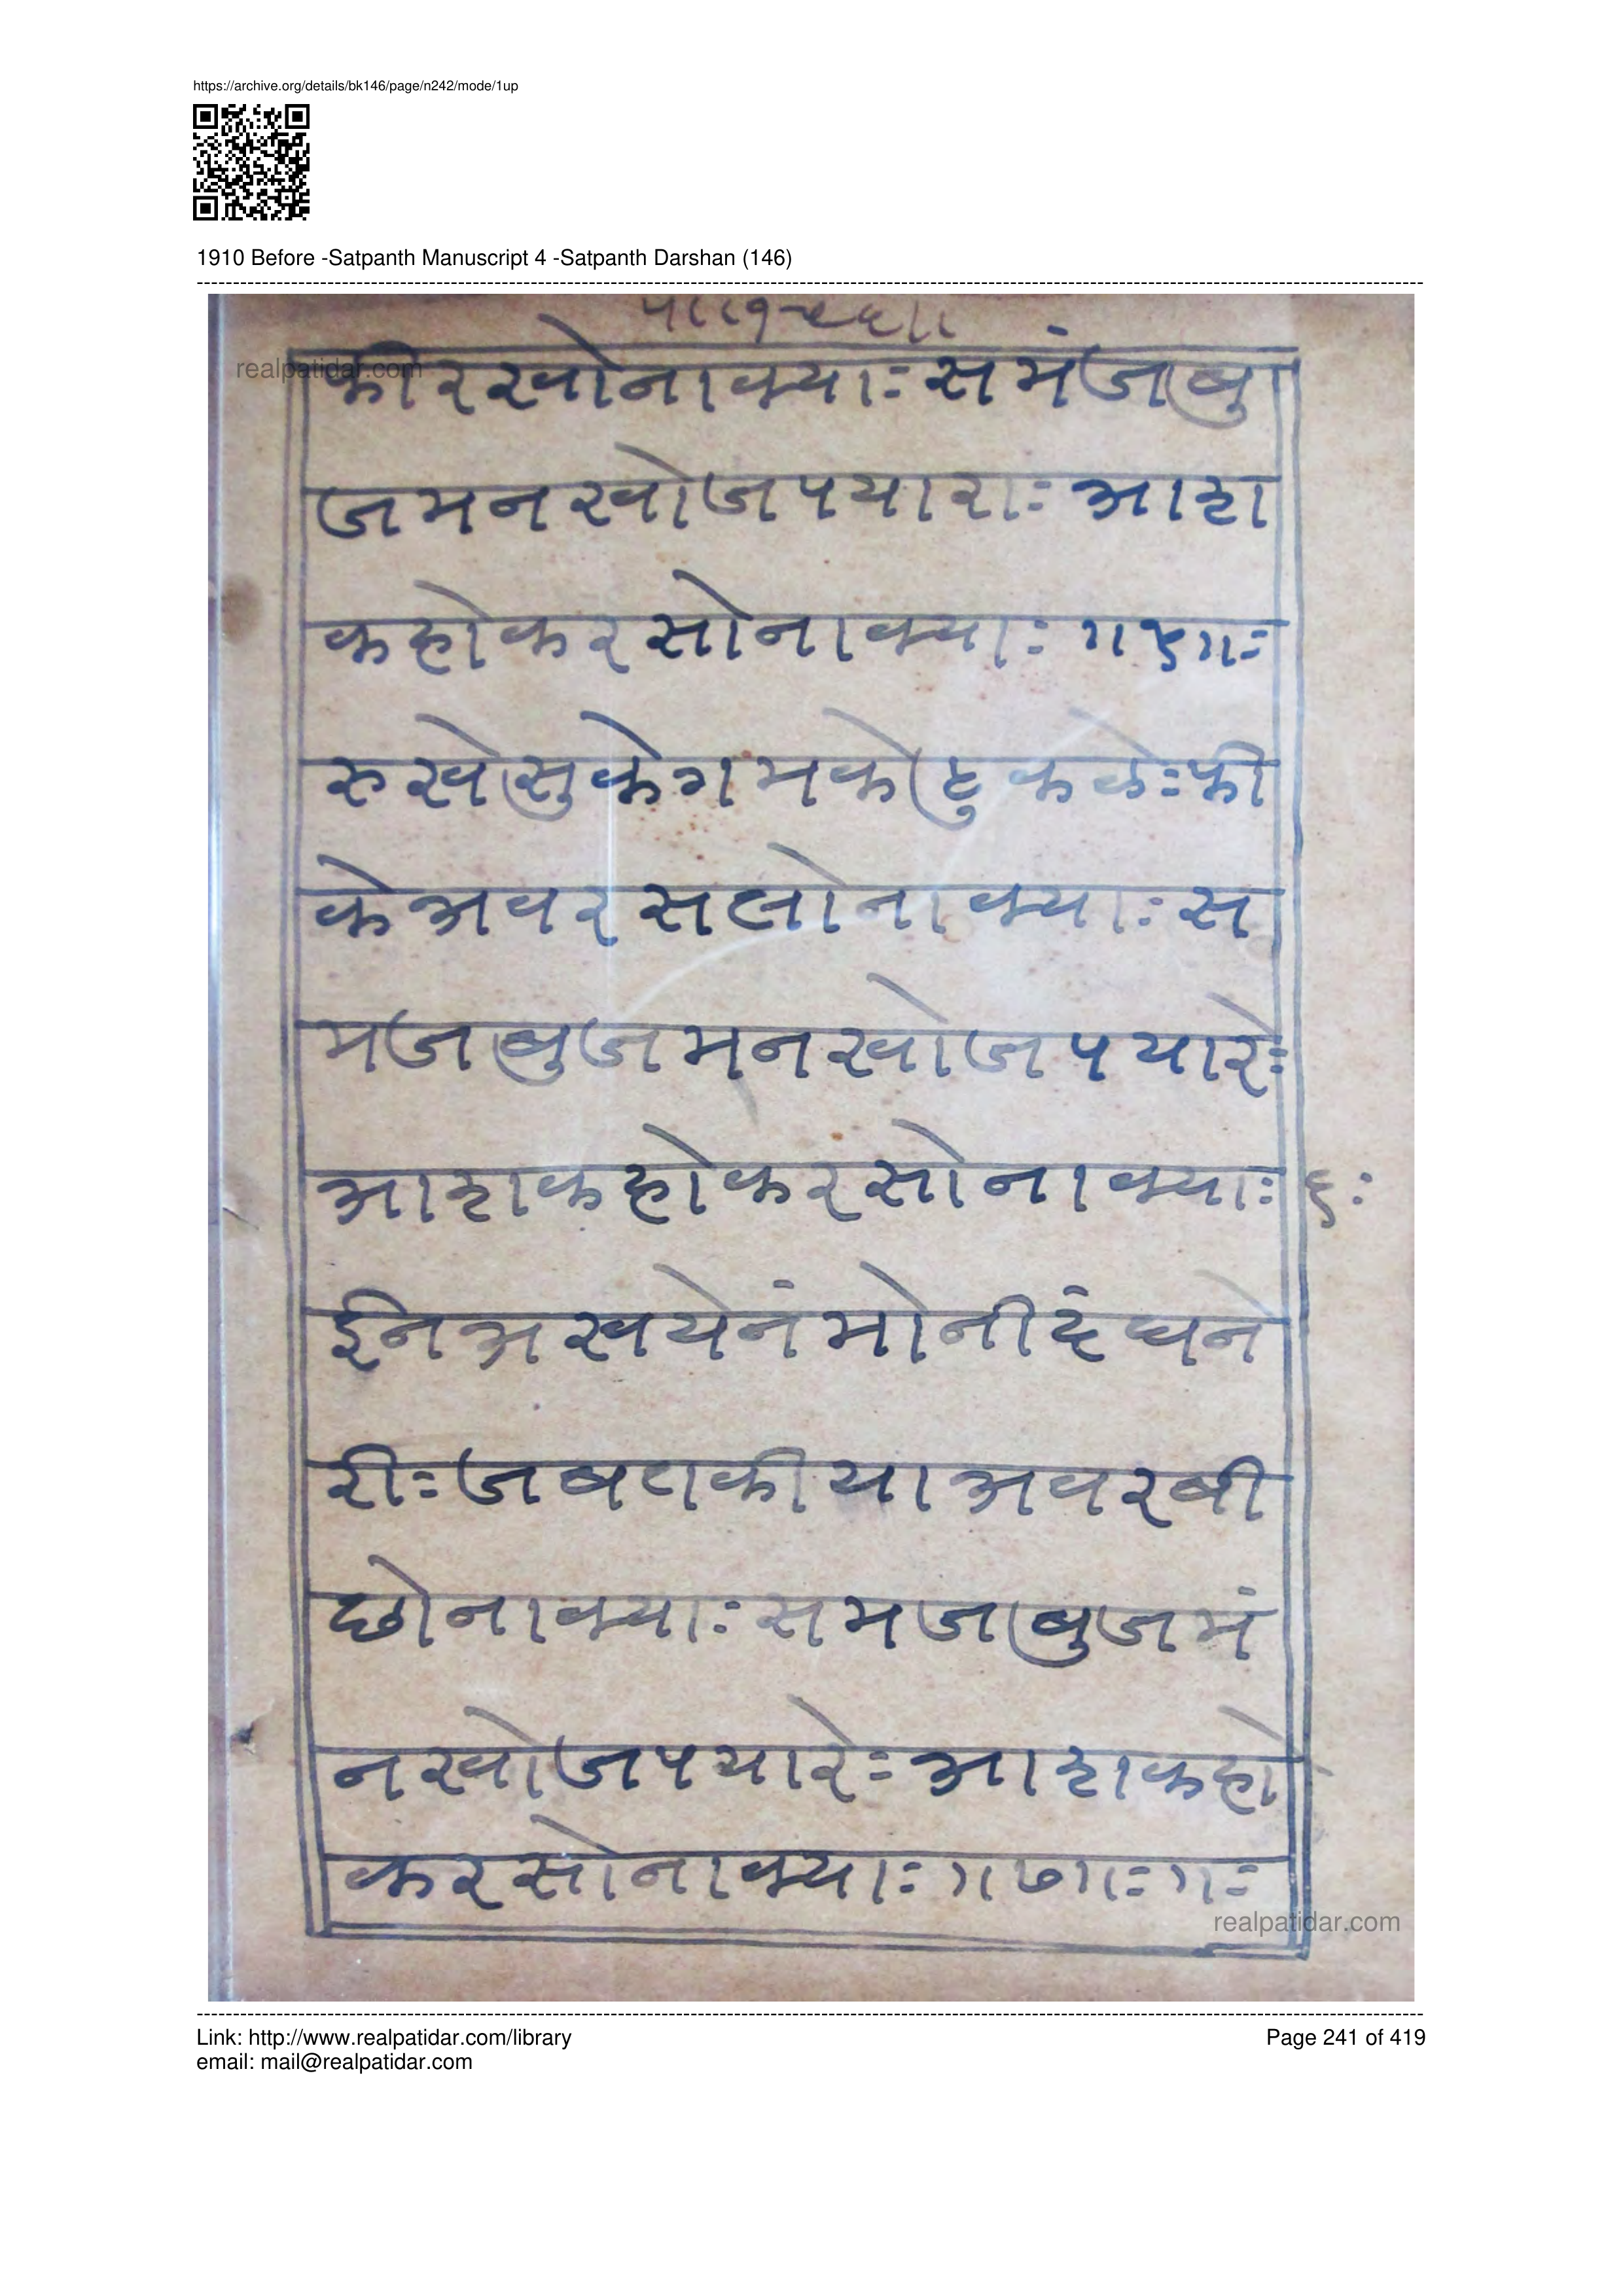 https://archive.org/details/bk146/page/n242/mode/1up
1910 Before -Satpanth Manuscript 4 -Satpanth Darshan (146)
realpatidar.com
फीरखोनाक्याः समंजबु
जमनखोजपयाराः आहा
कहोकरसोनाक्याः ॥५॥ः
रुखेसुकेगमकेटुकके ः फी
केअवरसलोनाक्याः स
मजबुजमनखोजपयारेः
आहाकहोकरसोनाक्याः ६ः
ईनअखयेनंमोनीदंघने
रीः जबतकीयाअवरबी
छोनाक्याः समजबुजमं
नखोजपयारेः आहाकहो
करसोनाक्याः ॥७॥ः ॥ः
realpatidar.com
Link: http://www.realpatidar.com/library
Page 241 of 419
email: mail@realpatidar.com